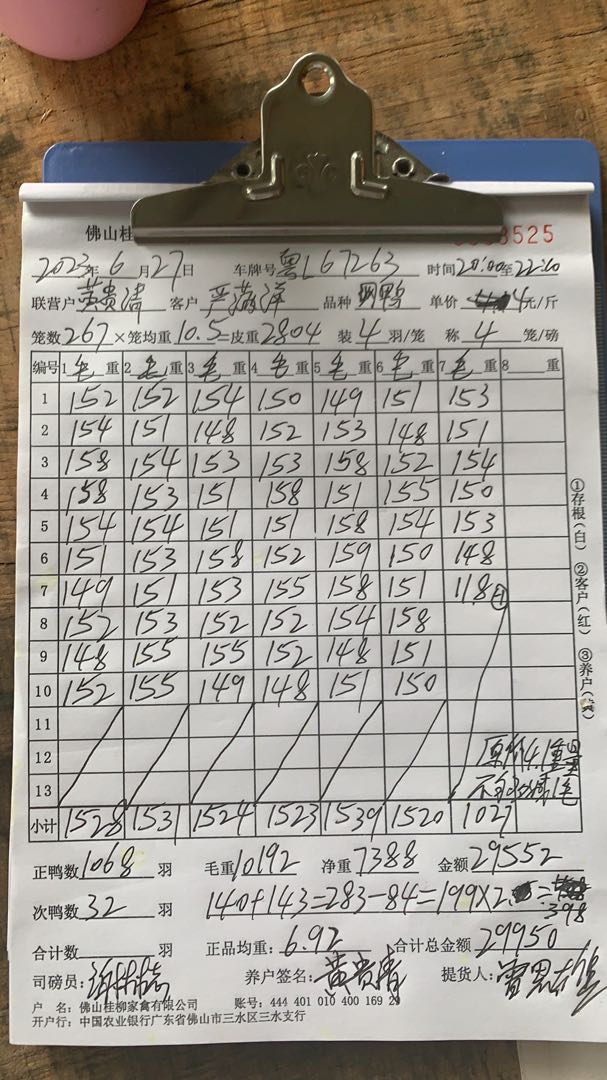 佛山桂
8525
2023年6月27日 车牌号粤L67263 时间20:00至22:10
联营户黄贵清 客户严满洋 品种 鸭 单价4元/斤
笼数267×笼均重10.5=皮重2804 装4羽/笼 称4笼/磅
编号 1毛重 2毛重 3毛重 4毛重 5毛重 6毛重 7毛重 8 重
1 152 152 154 150 149 151 153
2 154 151 148 152 153 148 151
3 158 154 153 153 158 152 154
4 158 153 151 158 151 155 150
5 154 154 151 151 158 154 153
6 151 153 158 152 159 150 148
7 149 151 153 155 158 151 118
8 152 153 152 152 154 158
9 148 155 155 152 148 151
10 152 155 149 148 151 150
11
12 原价4.1
13
小计 1528 1531 1524 1523 1539 1520 1027
正鸭数1068羽 毛重10192 净重7388 金额29552
次鸭数32羽 140+143=283-84=199×2=398
合计数 羽 正品均重:6.92 合计总金额29950
司磅员: 养户签名:黄贵清 提货人:
户 名:佛山桂柳家禽有限公司 账号:444 401 010 400 169 29
开户行:中国农业银行广东省佛山市三水区三水支行
①存根(白) ②客户(红) ③养户(黄)